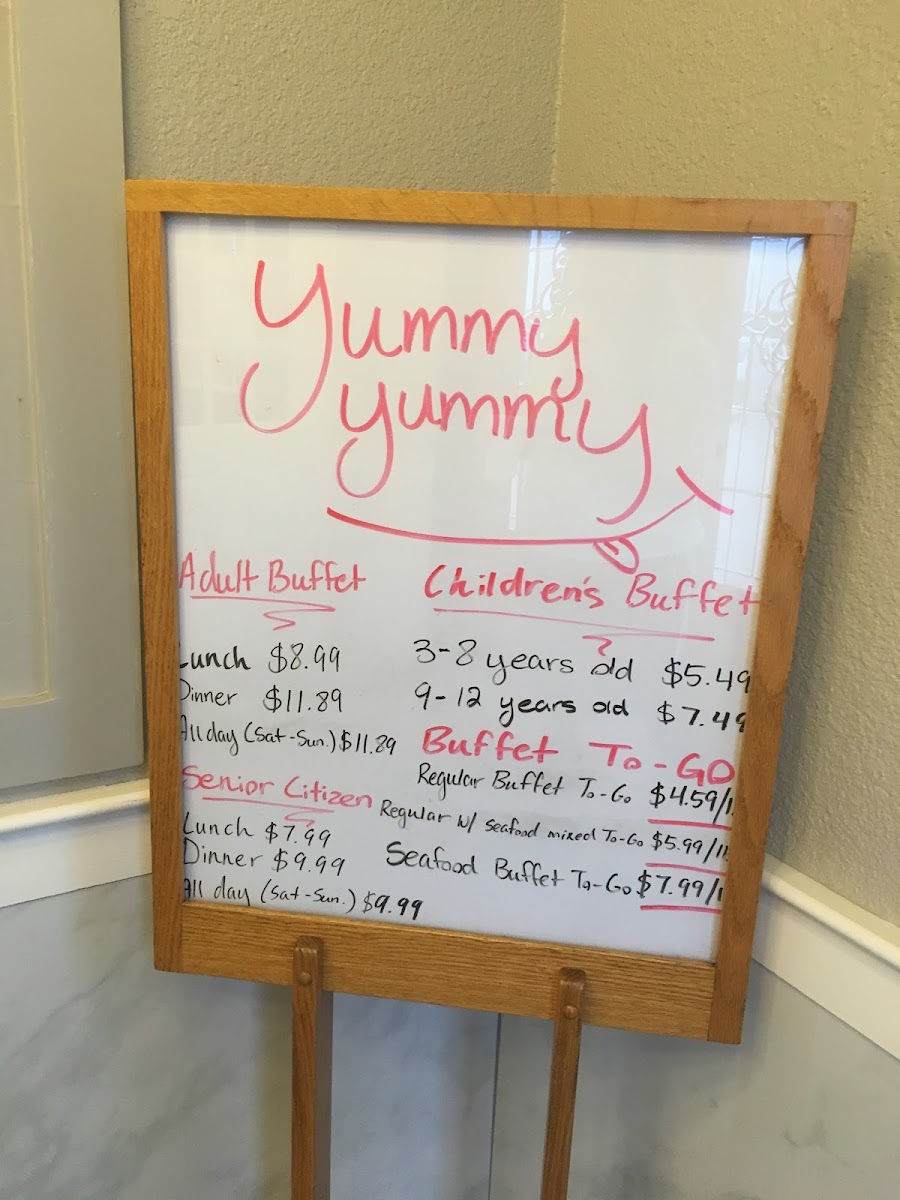 Yummy
yummy
Adult Buffet
Lunch $8.99
Dinner $11.89
All day (Sat-Sun.) $11.89
Senior Citizen
Lunch $7.99
Dinner $9.99
All day (Sat-Sun.) $9.99
Children's Buffet
3-8 years old $5.49
9-12 years old $7.49
Buffet To-GO
Regular Buffet To-Go $4.59/
Regular w/ Seafood mixed To-Go $5.99/
Seafood Buffet To-Go $7.99/